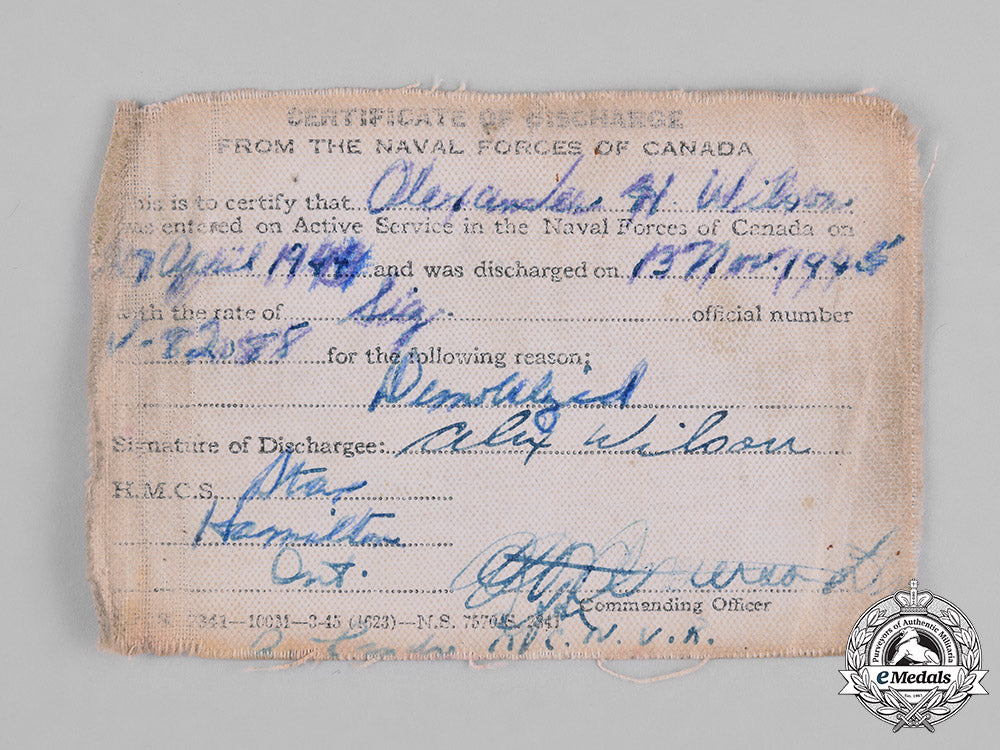 CERTIFICATE OF DISCHARGE
FROM THE NAVAL FORCES OF CANADA
This is to certify that Alexander H. Wilson
was entered on Active Service in the Naval Forces of Canada on
April 1944 and was discharged on 13 Nov. 1945
with the rate of Sig. official number
V-82088 for the following reason:
Demobilized
Signature of Dischargee: Alex Wilson
H.M.C.S. Star
Hamilton
Ont.
Commanding Officer
10031-3-45 (4623)-N.S.
R.C.N.V.R.
Purveyors of Authentic Militaria
eMedals